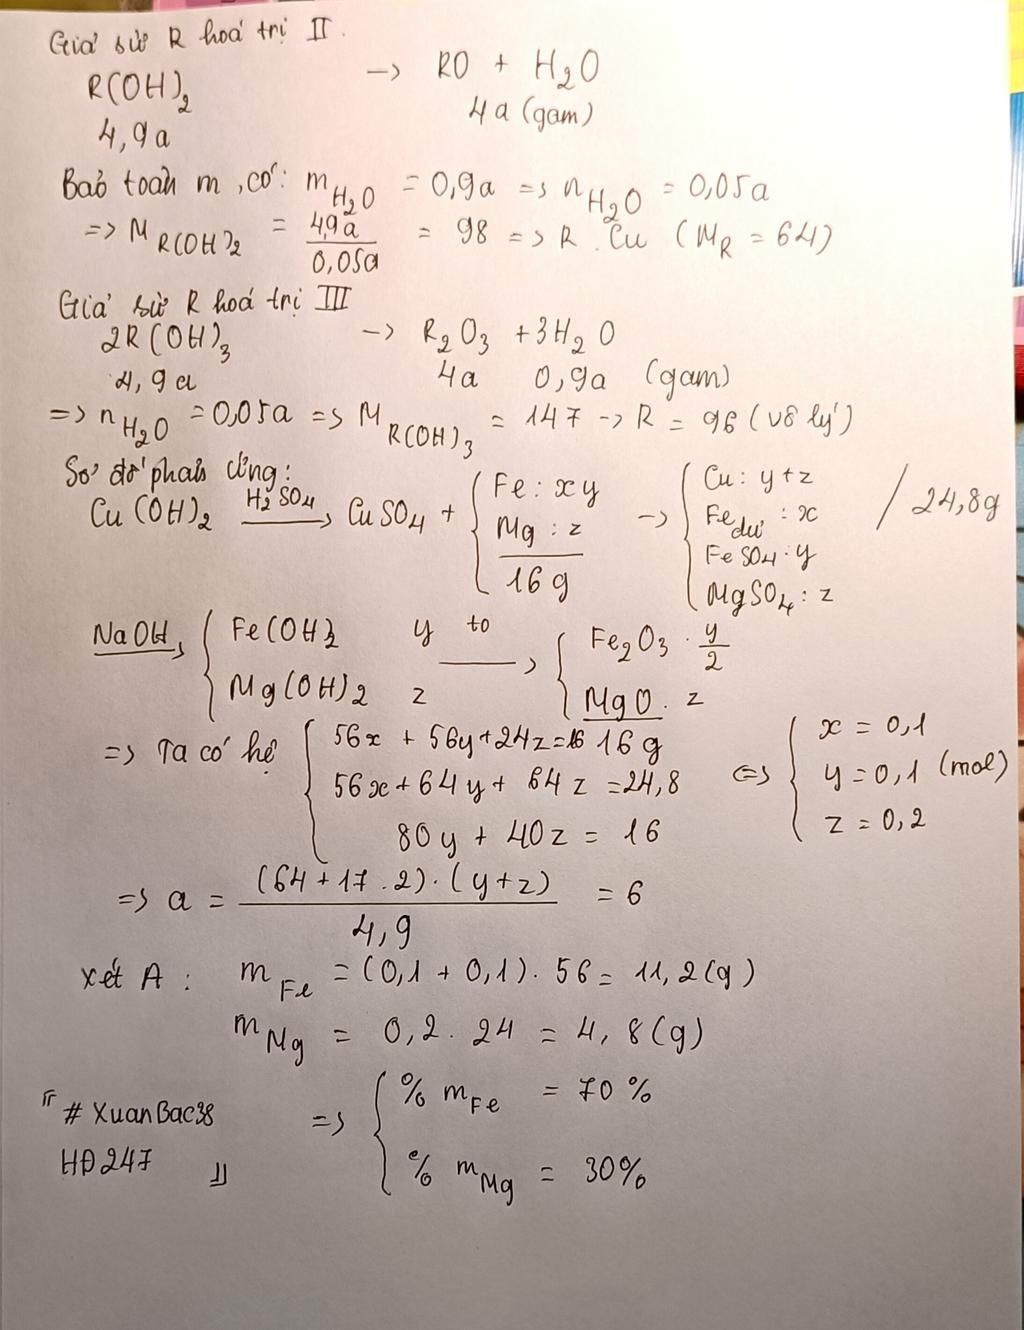 Giả sử R hoá trị II.
R(OH)2 -> RO + H2O
4,9a 4a (gam)
Bảo toàn m, có: mH2O = 0,9a => nH2O = 0,05a
=> MR(OH)2 = 4,9a/0,05a = 98 => R. Cu (MR = 64)
Giả sử R hoá trị III
2R(OH)3 -> R2O3 + 3H2O
4,9a 4a 0,9a (gam)
=> nH2O = 0,05a => MR(OH)3 = 147 -> R = 96 (vô lý)
Sơ đồ phản ứng:
Cu(OH)2 H2SO4 -> CuSO4 + { Fe: xy -> { Cu: y+z / 24,8g
Mg: z Fe dư: x
16g FeSO4: y
MgSO4: z
NaOH -> { Fe(OH)2 y to -> { Fe2O3. y/2
Mg(OH)2 z MgO. z
=> Ta có hệ { 56x + 56y + 24z = 16 16g <=> { x = 0,1
56x + 64y + 64z = 24,8 y = 0,1 (mol)
80y + 40z = 16 z = 0,2
=> a = (64 + 17.2).(y+z)/4,9 = 6
xét A: mFe = (0,1 + 0,1). 56 = 11,2(g)
mMg = 0,2. 24 = 4,8(g)
『 # XuanBac38 => { % mFe = 70%
HĐ247 』 % mMg = 30%